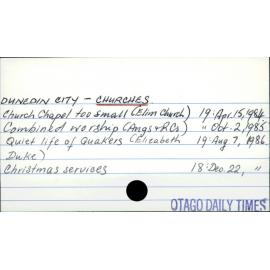 DUNEDIN CITY - CHURCHES
Church Chapel too small (Elim Church) 19:Apr.15,1984
Combined worship (Angs & RCs) " Oct. 2, 1985
Quiet life of Quakers (Elizabeth 19:Aug 7, 1986
Duke)
Christmas services 18:Dec 22, "
OTAGO DAILY TIMES